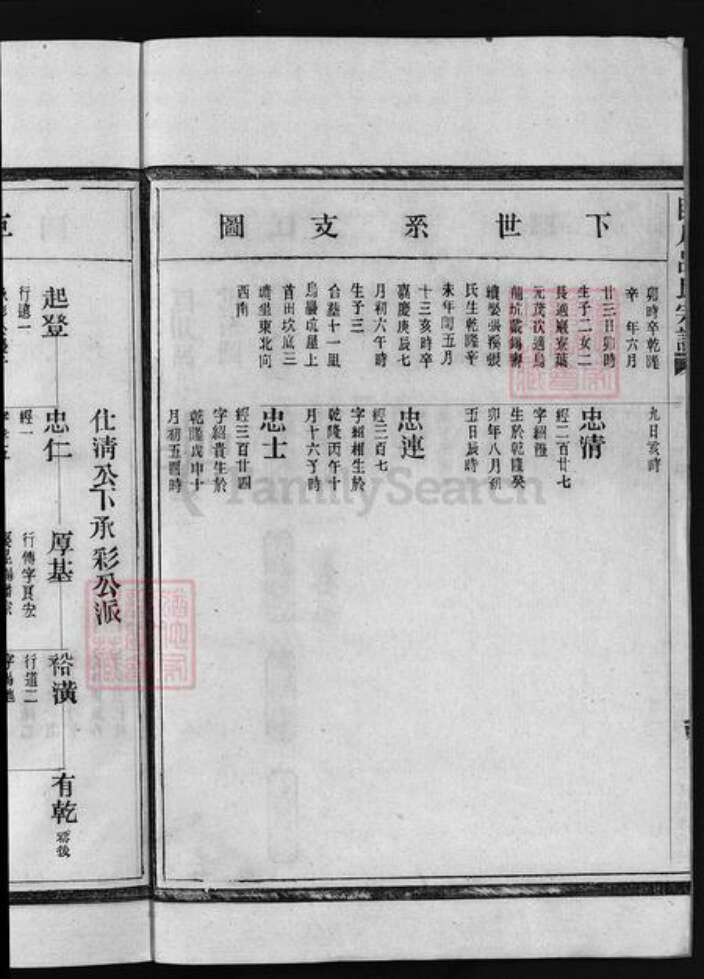 下世系支圖
卯時卒乾隆
辛 年六月
廿三日卯時
生子二女二
長適巖寮葉
元茂次適烏
龍坑戴錫壽
續娶張溪張
氏生乾隆辛
未年閏五月
十三亥時卒
嘉慶庚辰七
月初六午時
生子三
合葬十一里
烏巖坑屋上
首田坎底三
壙坐東北向
西南
九日亥時
忠清
經二百廿七
字紹
生於乾隆癸
卯年八月初
五日辰時
忠連
經三百七
字紹相生於
乾隆丙午十
月十六子時
忠士
經三百廿四
字紹貴生於
乾隆戊申十
月初五酉時
仕清公下承彩公派
起登
行遠一
忠仁
經一
厚基
行傳字頁宏
裕潢
行道二
有乾
FamilySearch